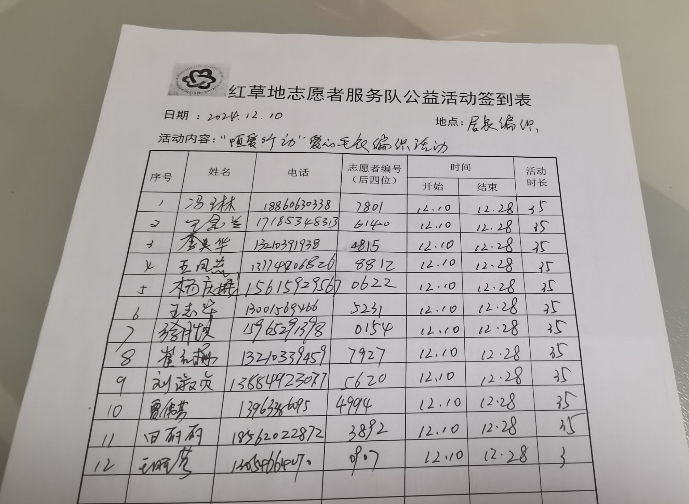 红草地志愿者服务队公益活动签到表
日期：2024.12.10 地点：居家编织
活动内容："暖冬行动"爱心毛衣编织活动
序号 姓名 电话 志愿者编号（后四位） 时间 开始 结束 活动时长
1 冯玉林 18860630338 7801 12.10 12.28 35
2 17185348313 6140 12.10 12.28 35
3 李美华 13210391938 4815 12.10 12.28 35
4 王凤蕊 8812 12.10 12.28 35
5 15615929567 0622 12.10 12.28 35
6 王志华 5231 12.10 12.28 35
7 15965291398 0154 12.10 12.28 35
8 13210339459 7927 12.10 12.28 35
9 刘淑贞 13884923077 5620 12.10 12.28 35
10 4994 12.10 12.28 35
11 田丽丽 18562022872 3892 12.10 12.28 35
12 12.10 12.28 3